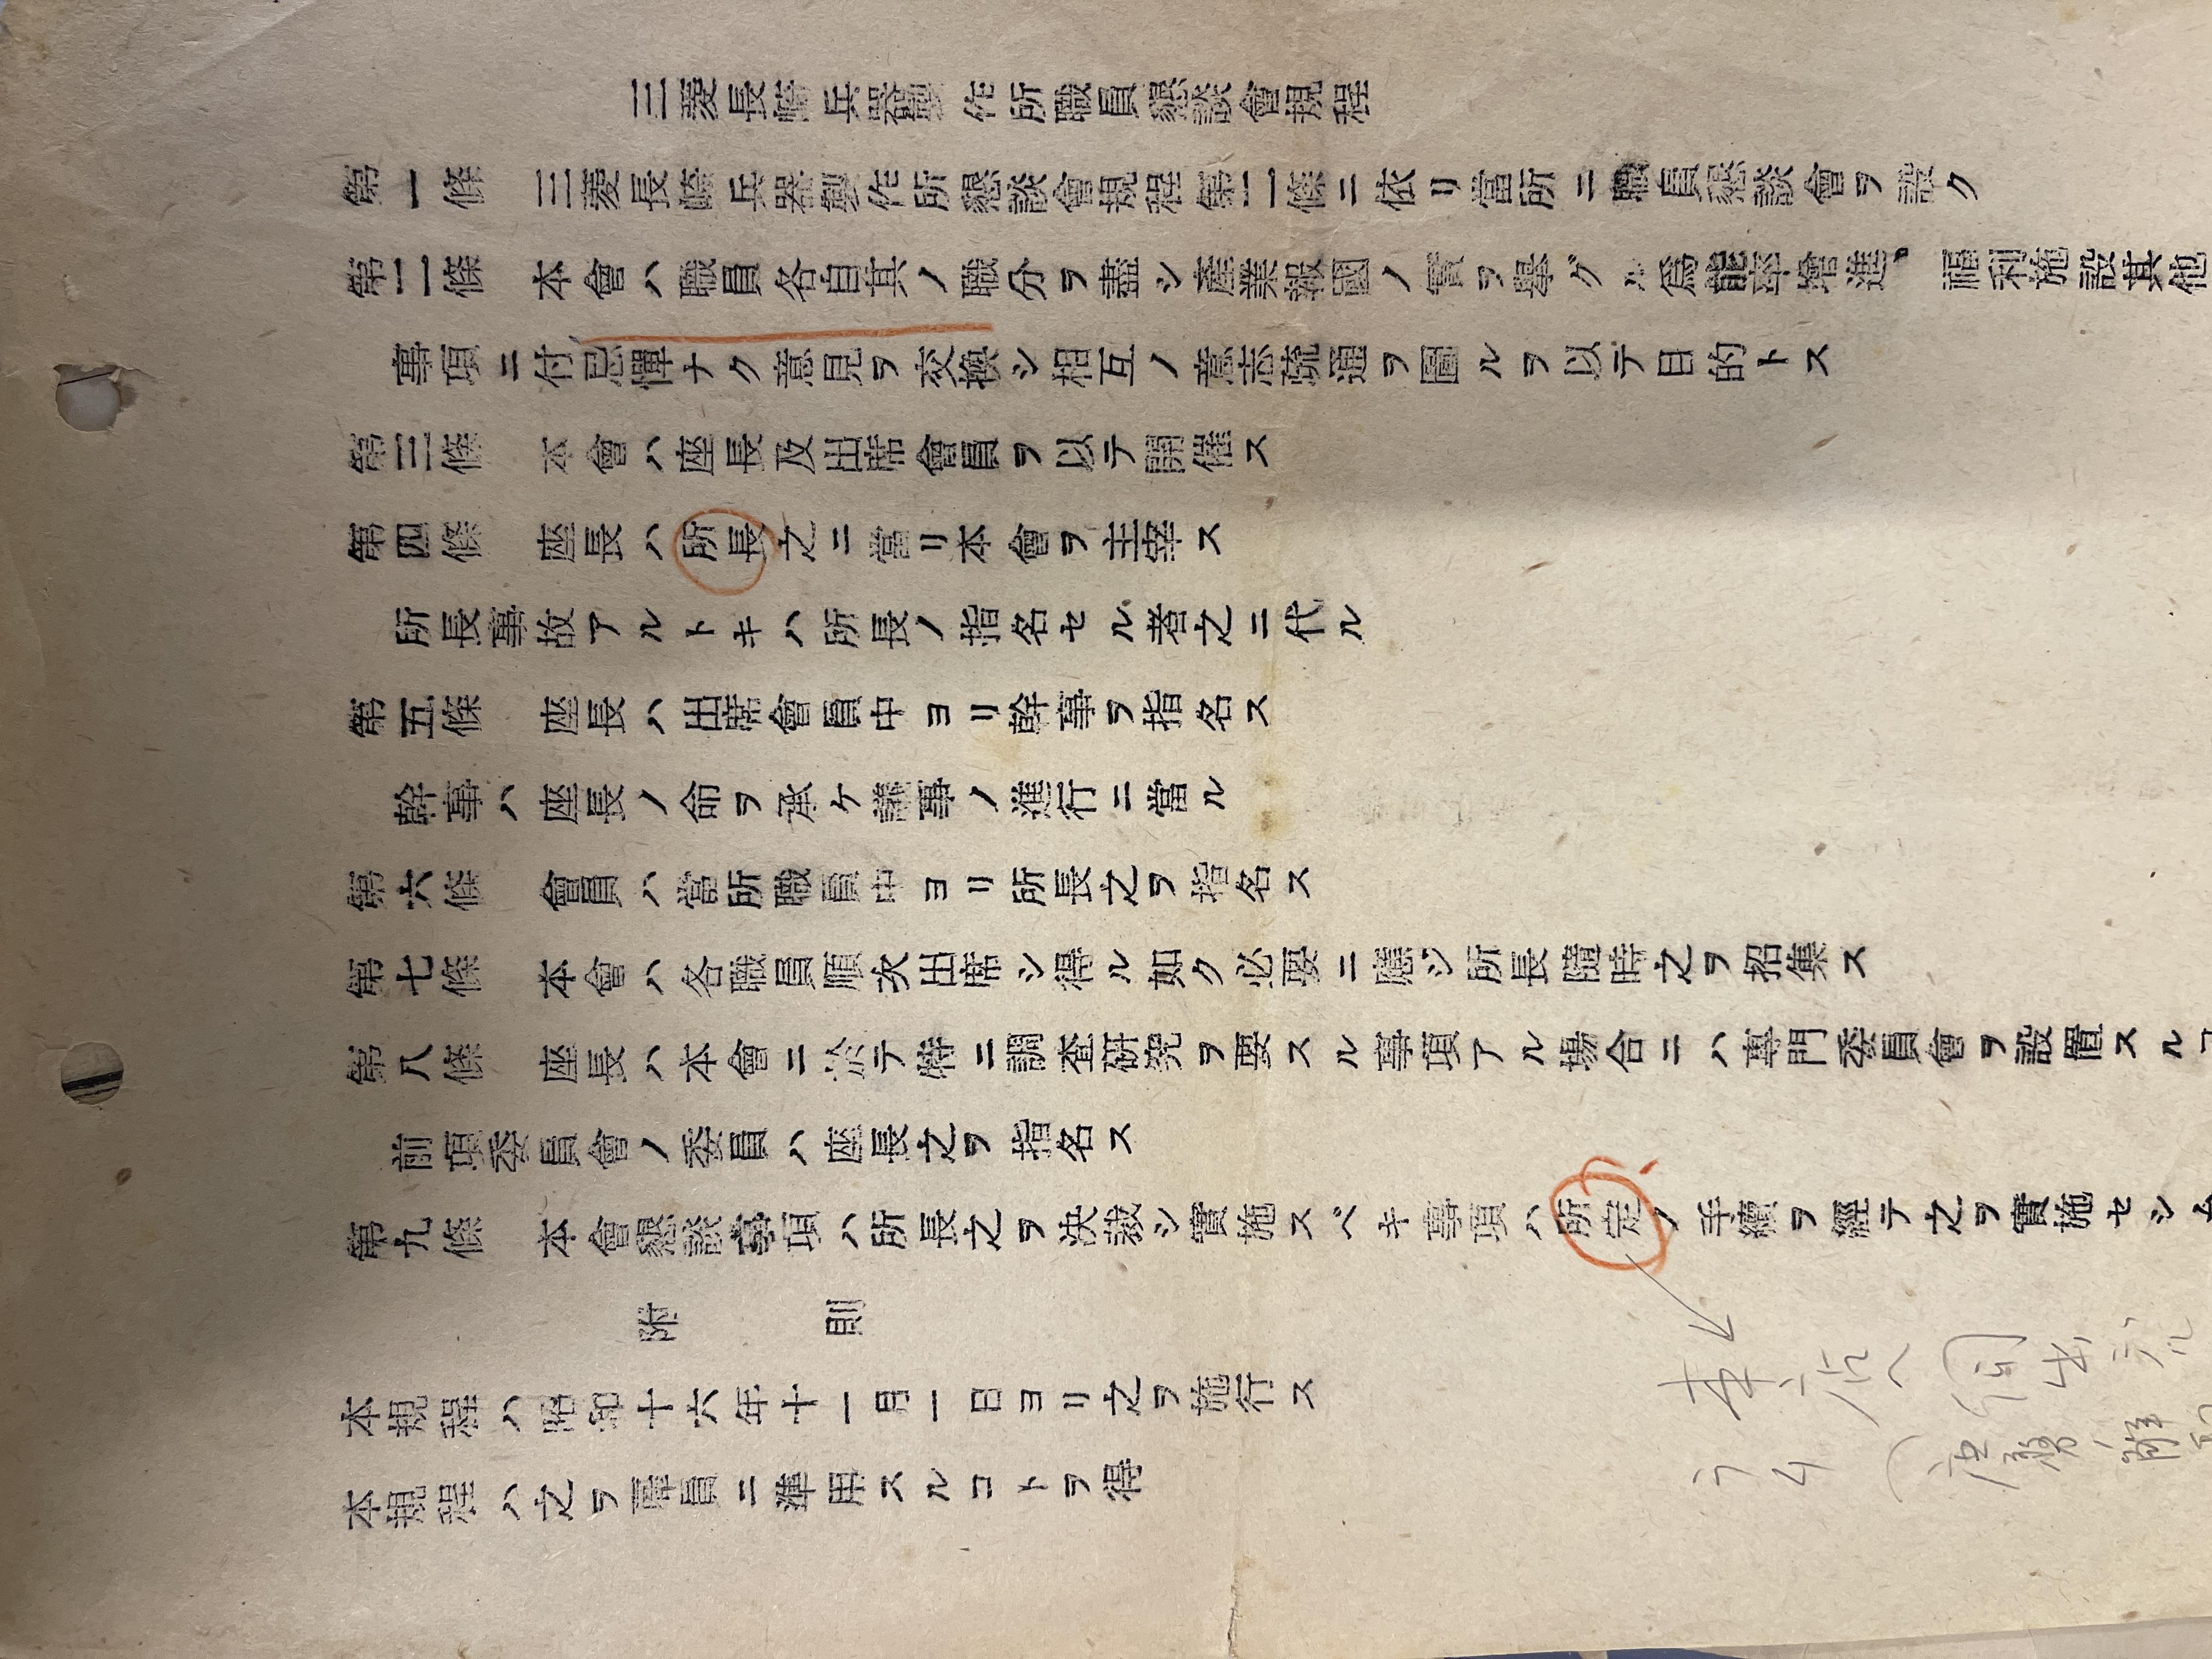 三菱長崎兵器製作所職員懇談會規程
第一條　三菱長崎兵器製作所懇談會規程第二條ニ依リ當所ニ職員懇談會ヲ設ク
第二條　本會ハ職員各自其ノ職分ヲ盡シ産業報國ノ實ヲ擧グル爲能率增進、福利施設其他
事項ニ付忌憚ナク意見ヲ交換シ相互ノ意志疏通ヲ圖ルヲ以テ目的トス
第三條　本會ハ座長及出席會員ヲ以テ開催ス
第四條　座長ハ所長之ニ當リ本會ヲ主宰ス
所長事故アルトキハ所長ノ指名セル者之ニ代ル
第五條　座長ハ出席會員中ヨリ幹事ヲ指名ス
幹事ハ座長ノ命ヲ承ケ議事ノ進行ニ當ル
第六條　會員ハ當所職員中ヨリ所長之ヲ指名ス
第七條　本會ハ各職員順次出席シ得ル如ク必要ニ應ジ所長隨時之ヲ招集ス
第八條　座長ハ本會ニ於テ特ニ調査硏究ヲ要スル事項アル場合ニハ專門委員會ヲ設置スルコ
前項委員會ノ委員ハ座長之ヲ指名ス
第九條　本會懇談事項ハ所長之ヲ決裁シ實施スベキ事項ハ所定ノ手續ヲ經テ之ヲ實施セシム
附　則
本規程ハ昭和十六年十一月一日ヨリ之ヲ施行ス
本規程ハ之ヲ雇員ニ準用スルコトヲ得
本店ヘ伺出デル